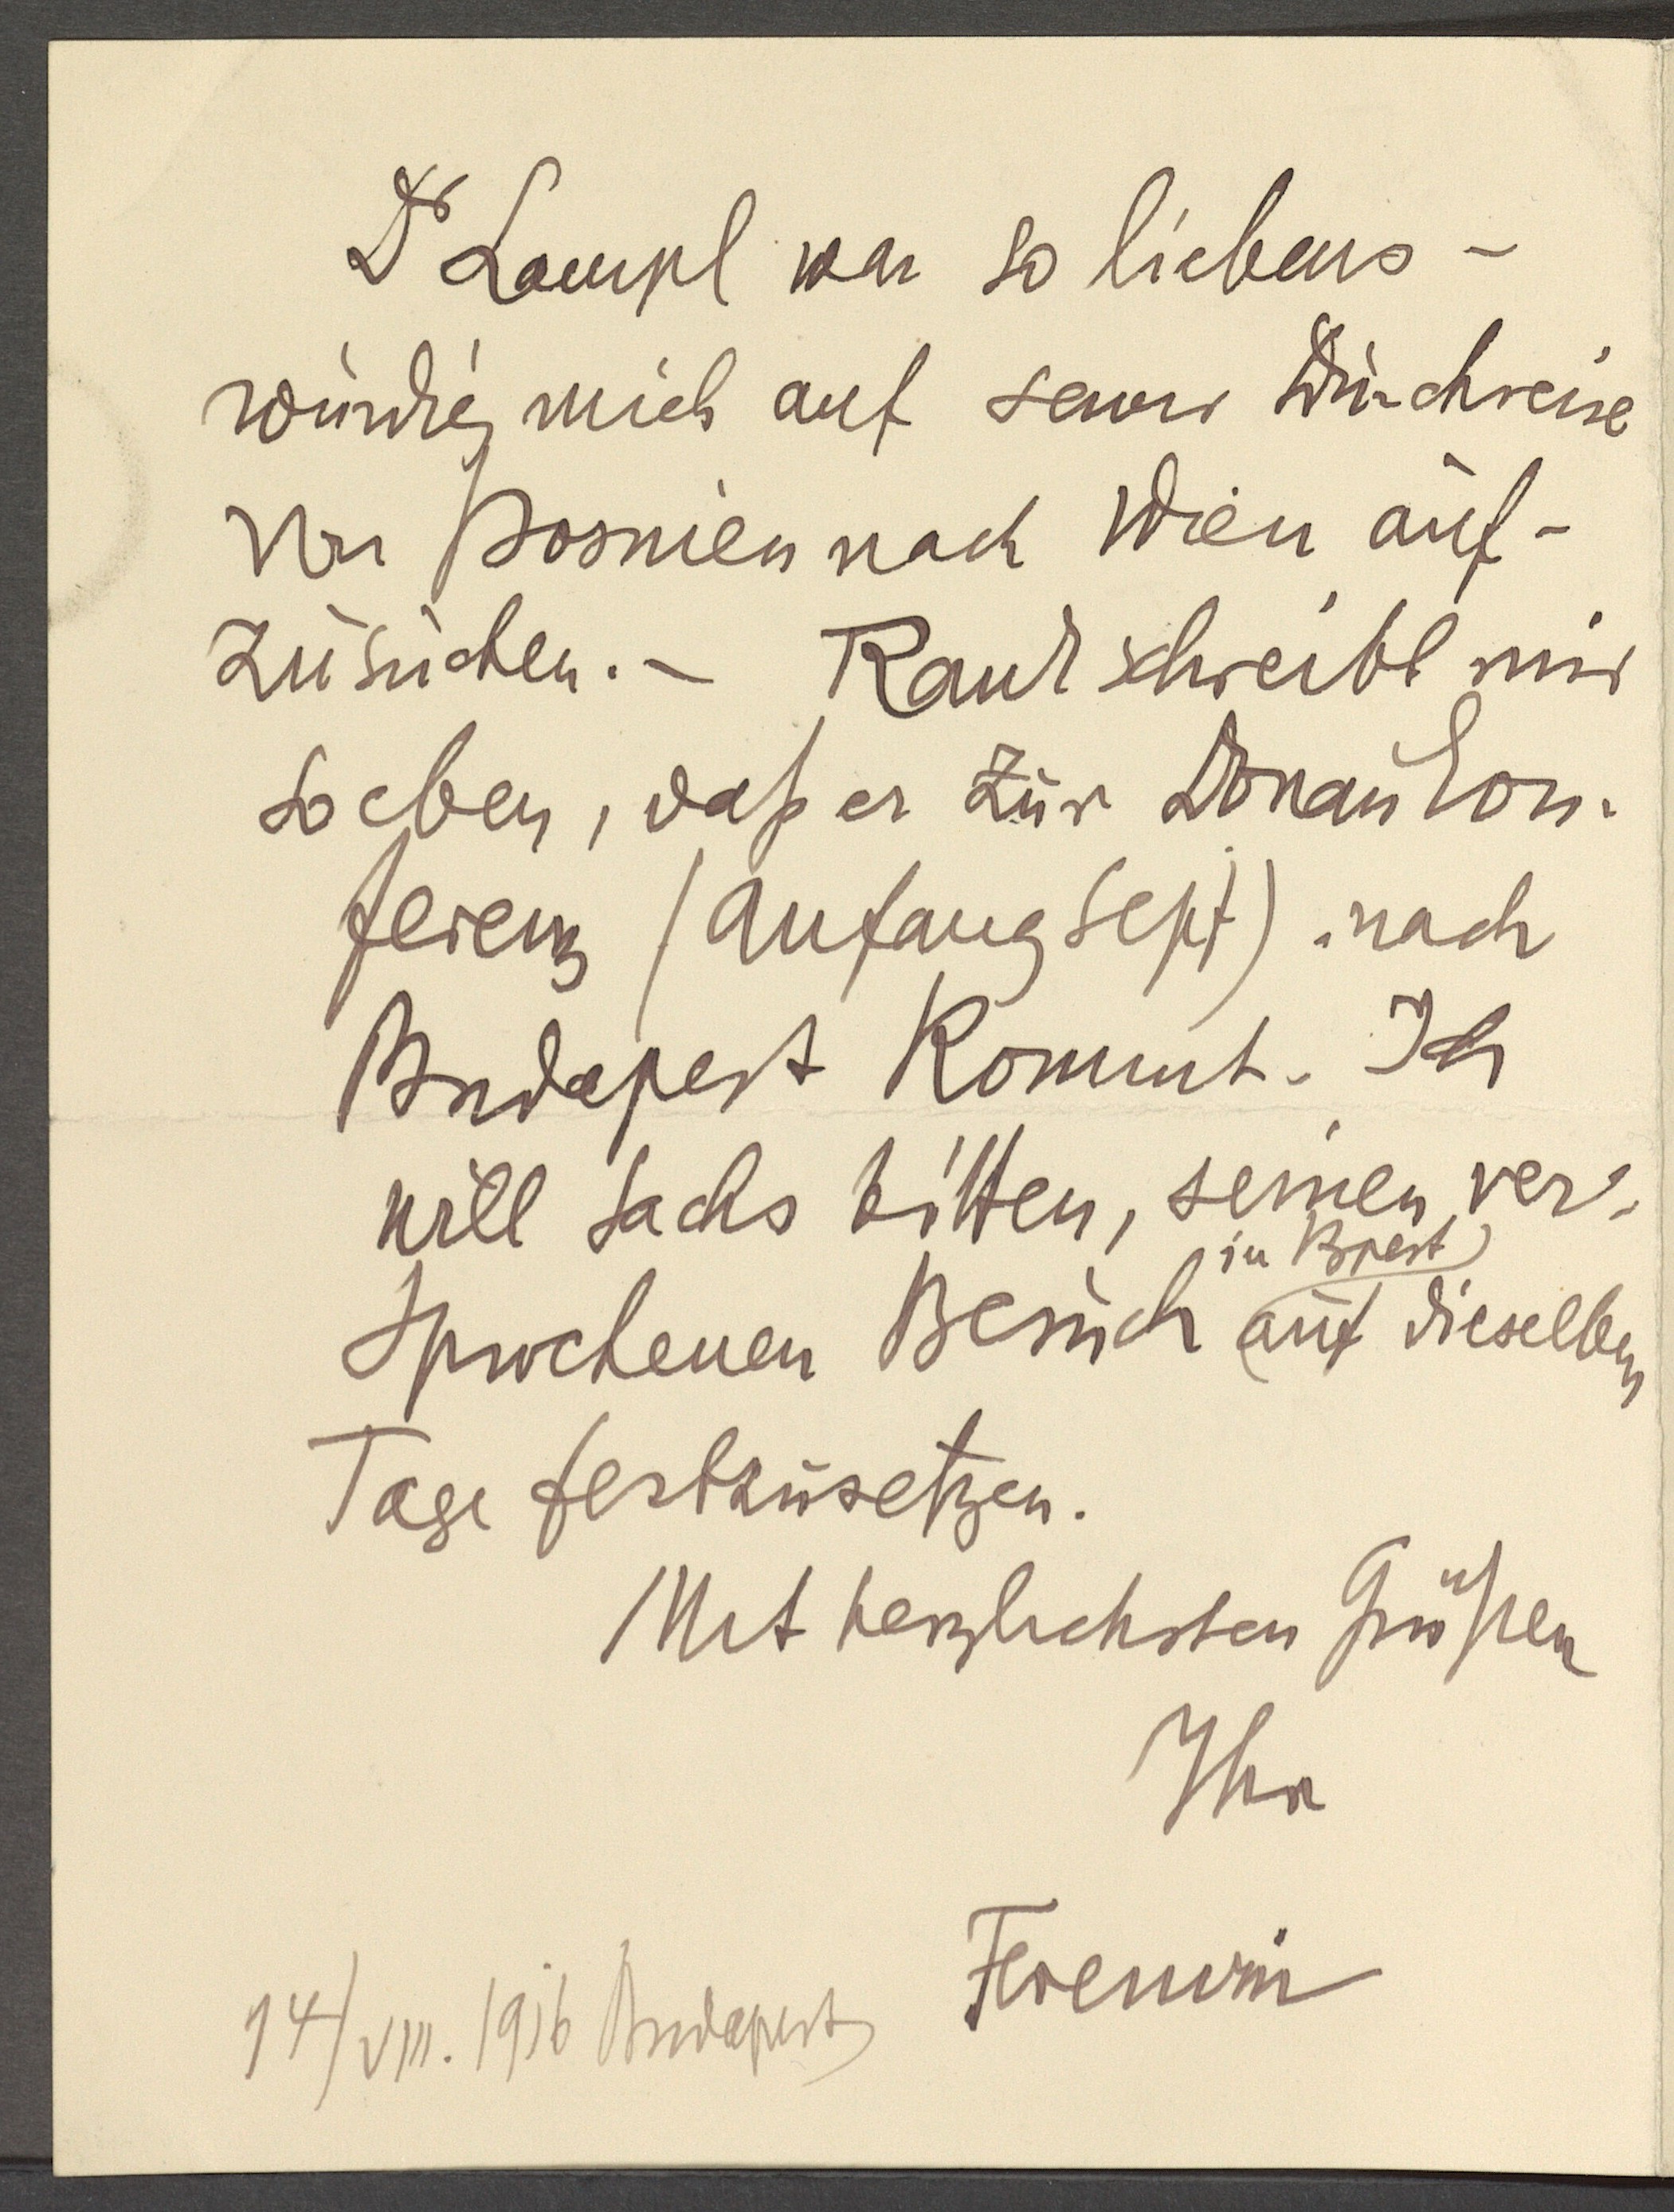 Dr Lampl war so liebens-
würdig mich auf seiner Durchreise
von Bosnien nach Wien auf-
zusuchen. – Rank schreibt mir
soeben, daß er zur Donaukon-
ferenz (Anfang Sept) nach
Budapest kommt. Ich
will Sachs bitten, seinen ver-
in Bpest
sprochenen Besuch auf dieselben
Tage festzusetzen.
Mit herzlichsten Grüßen
Ihr
Ferenczi
14/VIII. 1916 Budapest